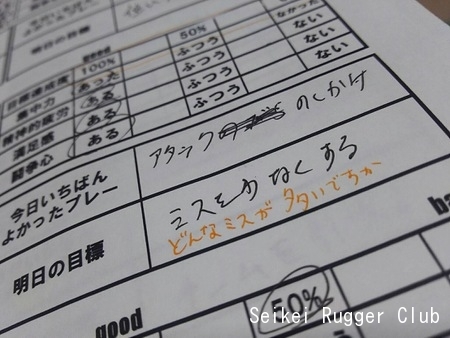 明日の目標
good 50%
目標達成度 100% なかった
集中力 あった ふつう ない
精神的疲労 ある ふつう ない
満足感 ある ふつう ない
闘争心 ある ふつう
今日いちばん
よかったプレー
アタック のしかけ
明日の目標
ミスを少なくする
どんなミスが多いですか
good 50% ba
Seikei Rugger Club